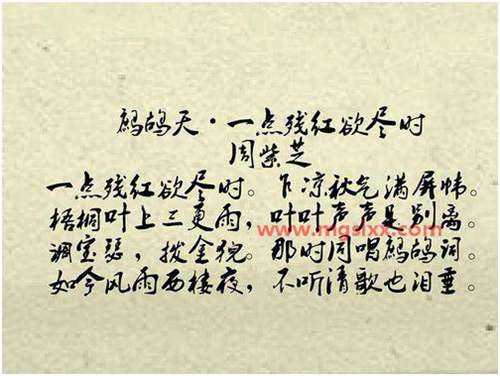 鹧鸪天·一点残红欲尽时
周紫芝
一点残红欲尽时。乍凉秋气满屏帏。
梧桐叶上三更雨，叶叶声声是别离。
www.mgslxx.com
调宝瑟，拨金猊。那时同唱鹧鸪词。
如今风雨西楼夜，不听清歌也泪垂。